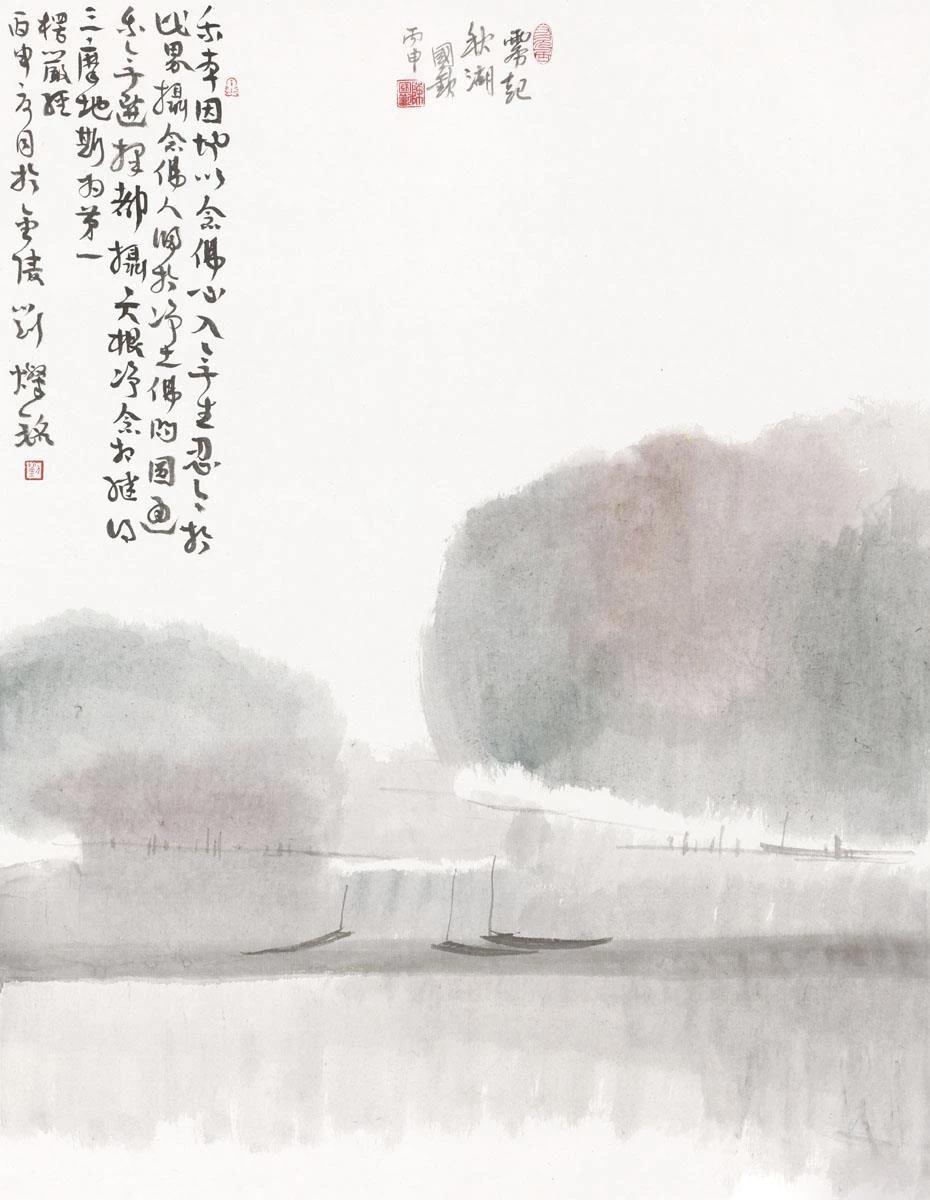 霧起
秋湖
國歡
丙申
我本因地以念佛心入無生忍今於
此界攝念佛人歸於净土佛問圓通
我無選擇都攝六根净念相繼得
三摩地斯為第一
楞嚴經
丙申月於金陵劉燦銘